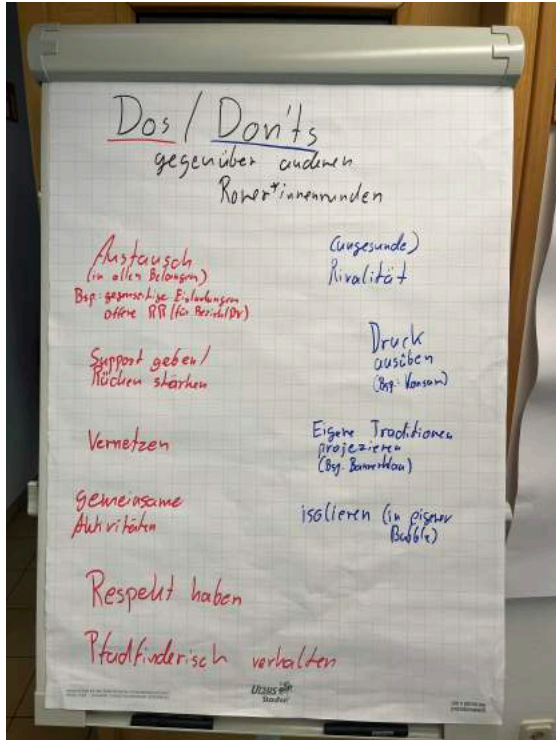 Dos / Don'ts
gegenüber anderen
Rover*innenrunden
Austausch
(in allen Belangen)
Bsp: gegenseitige Einladungen
offene RR (für Bezirk/DV)
Support geben/
Rücken stärken
Vernetzen
gemeinsame
Aktivitäten
Respekt haben
Pfadfinderisch verhalten
(ungesunde)
Rivalität
Druck
ausüben
(Bsp: Konsum)
Eigene Traditionen
projezieren
(Bsp. Bannerklau)
isolieren (in eigener
Bubble)
URSUS